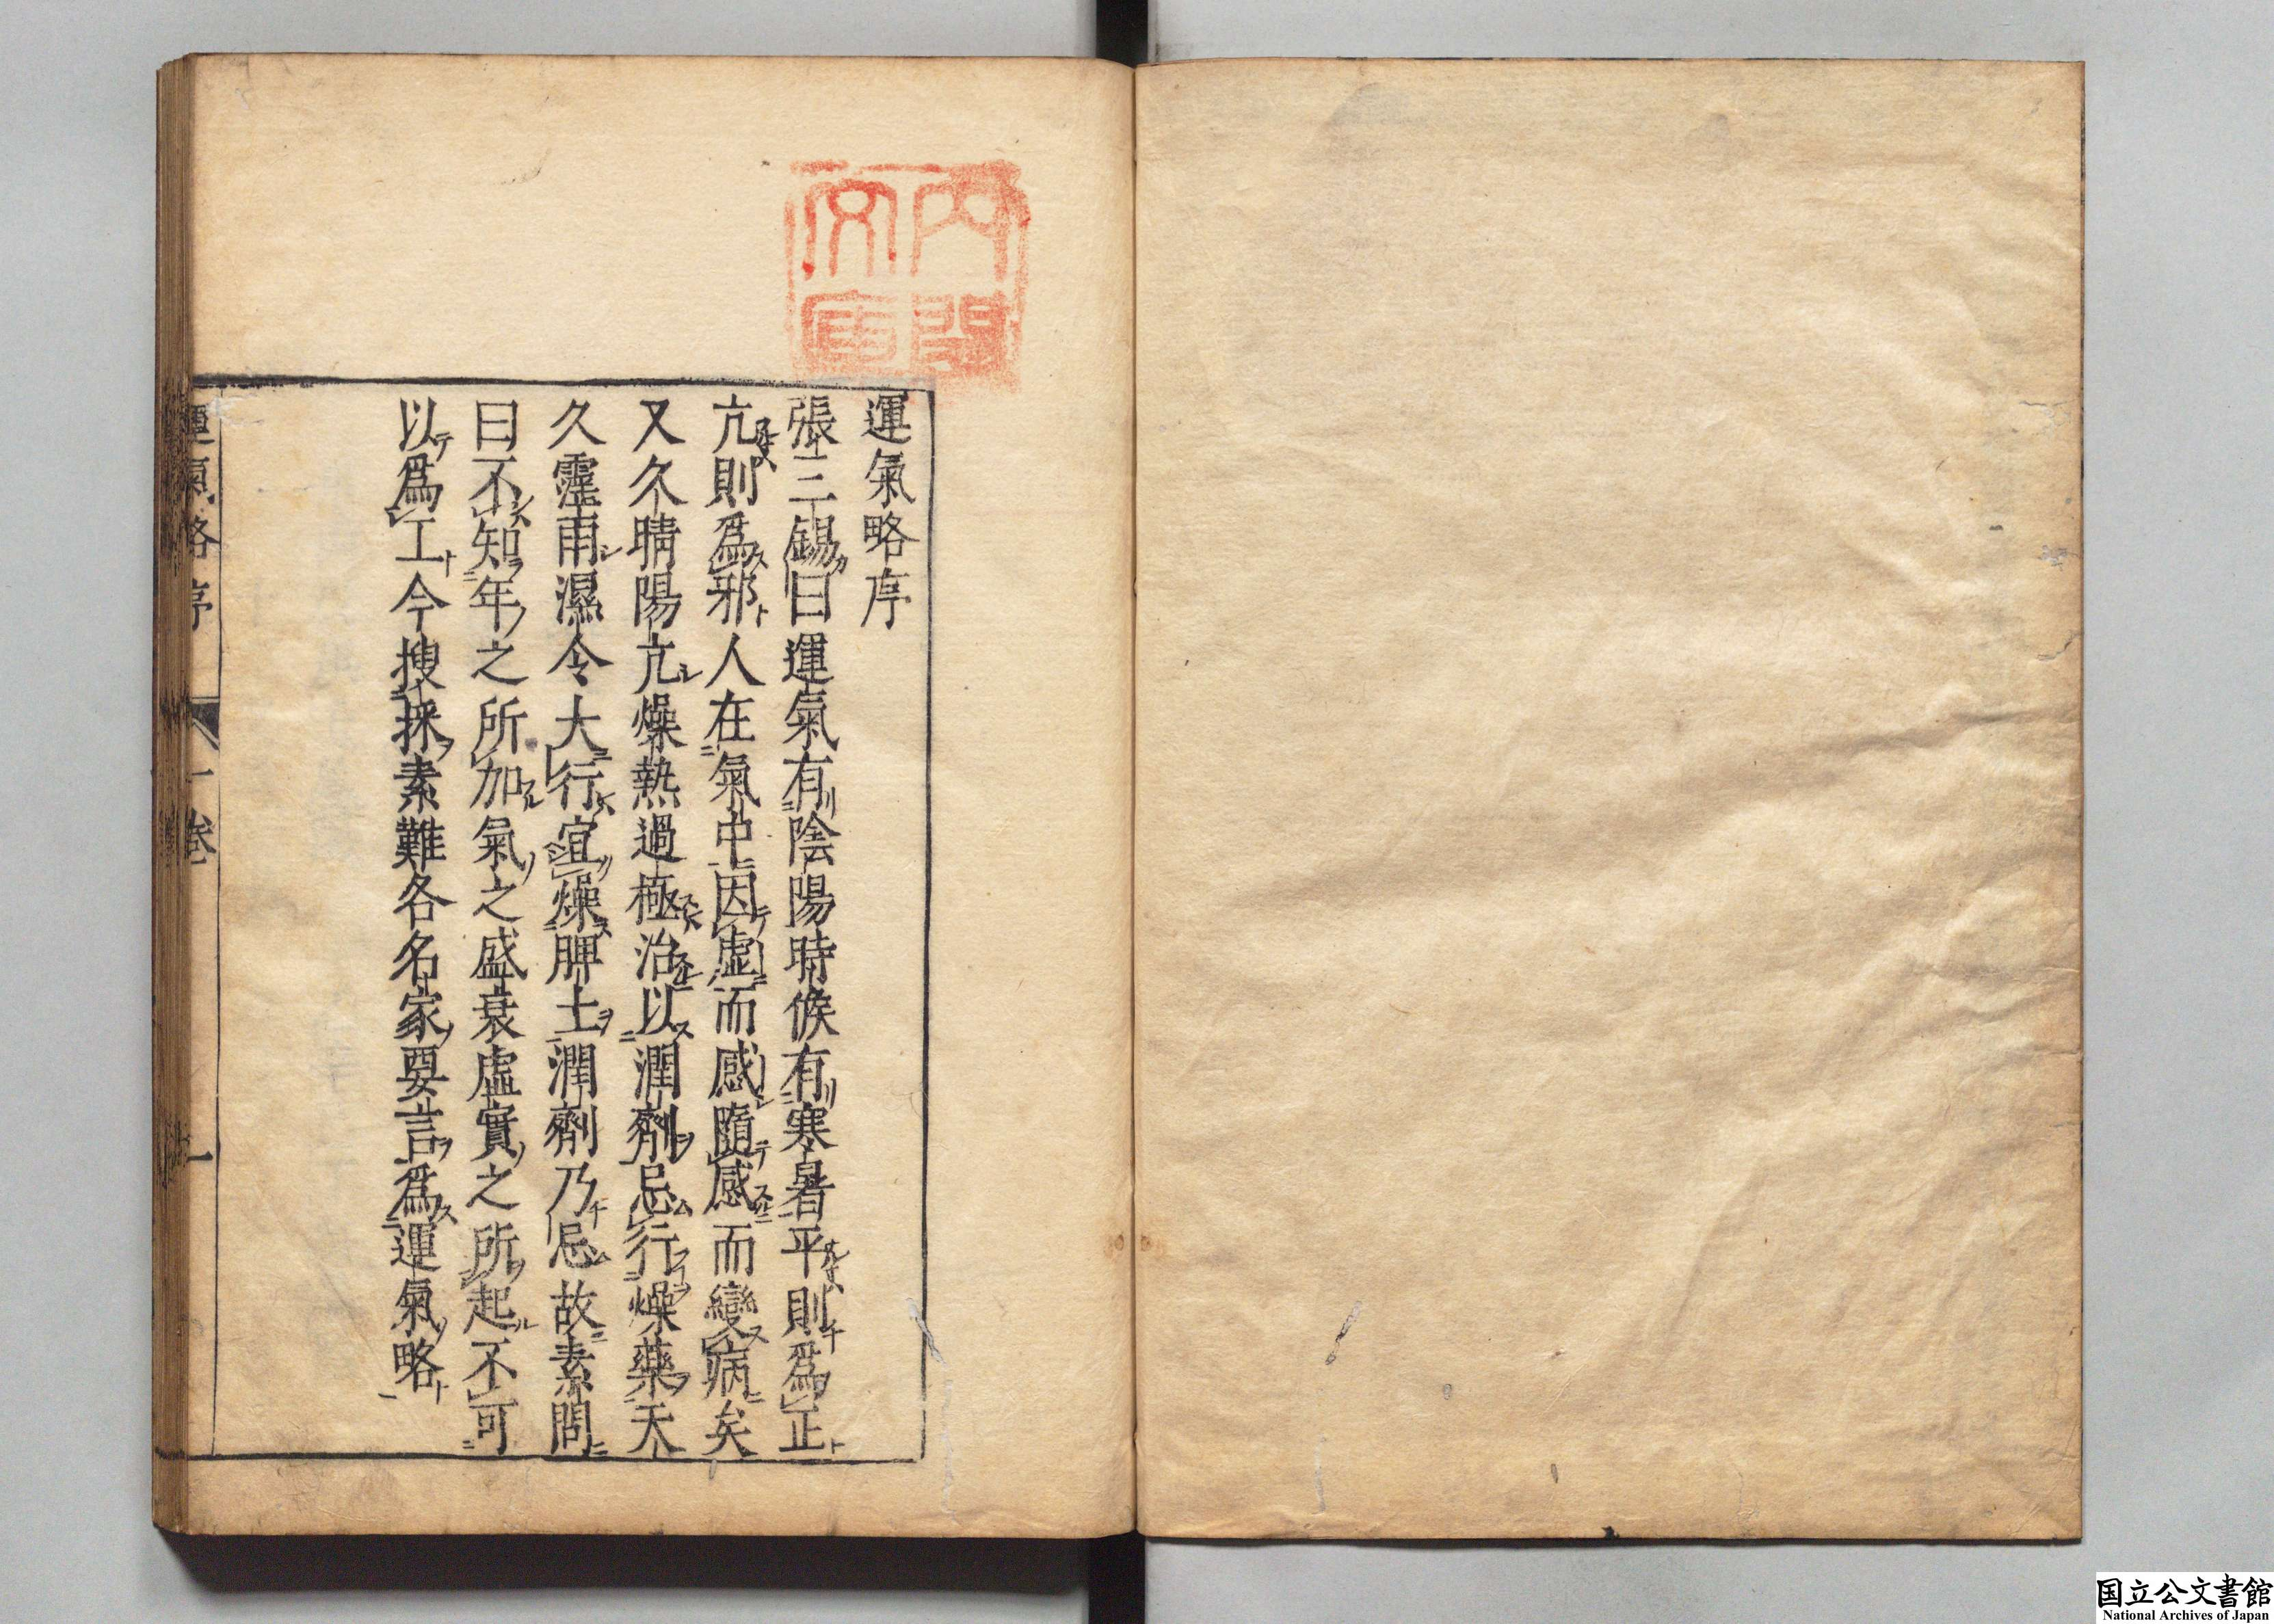 内閣
文庫
運氣略序
張三錫曰運氣有陰陽時候有寒暑平則爲正
亢則爲邪人在氣中因虛而感隨感而變病矣
又久晴陽亢燥熱過極治以潤劑忌行燥藥天
久霪雨濕令大行宜燥脾土潤劑乃忌故素問
曰不知年之所加氣之盛衰虛實之所起不可
以爲工今搜採素難各名家要言爲運氣略
運氣略序 一卷 一
国立公文書館
National Archives of Japan